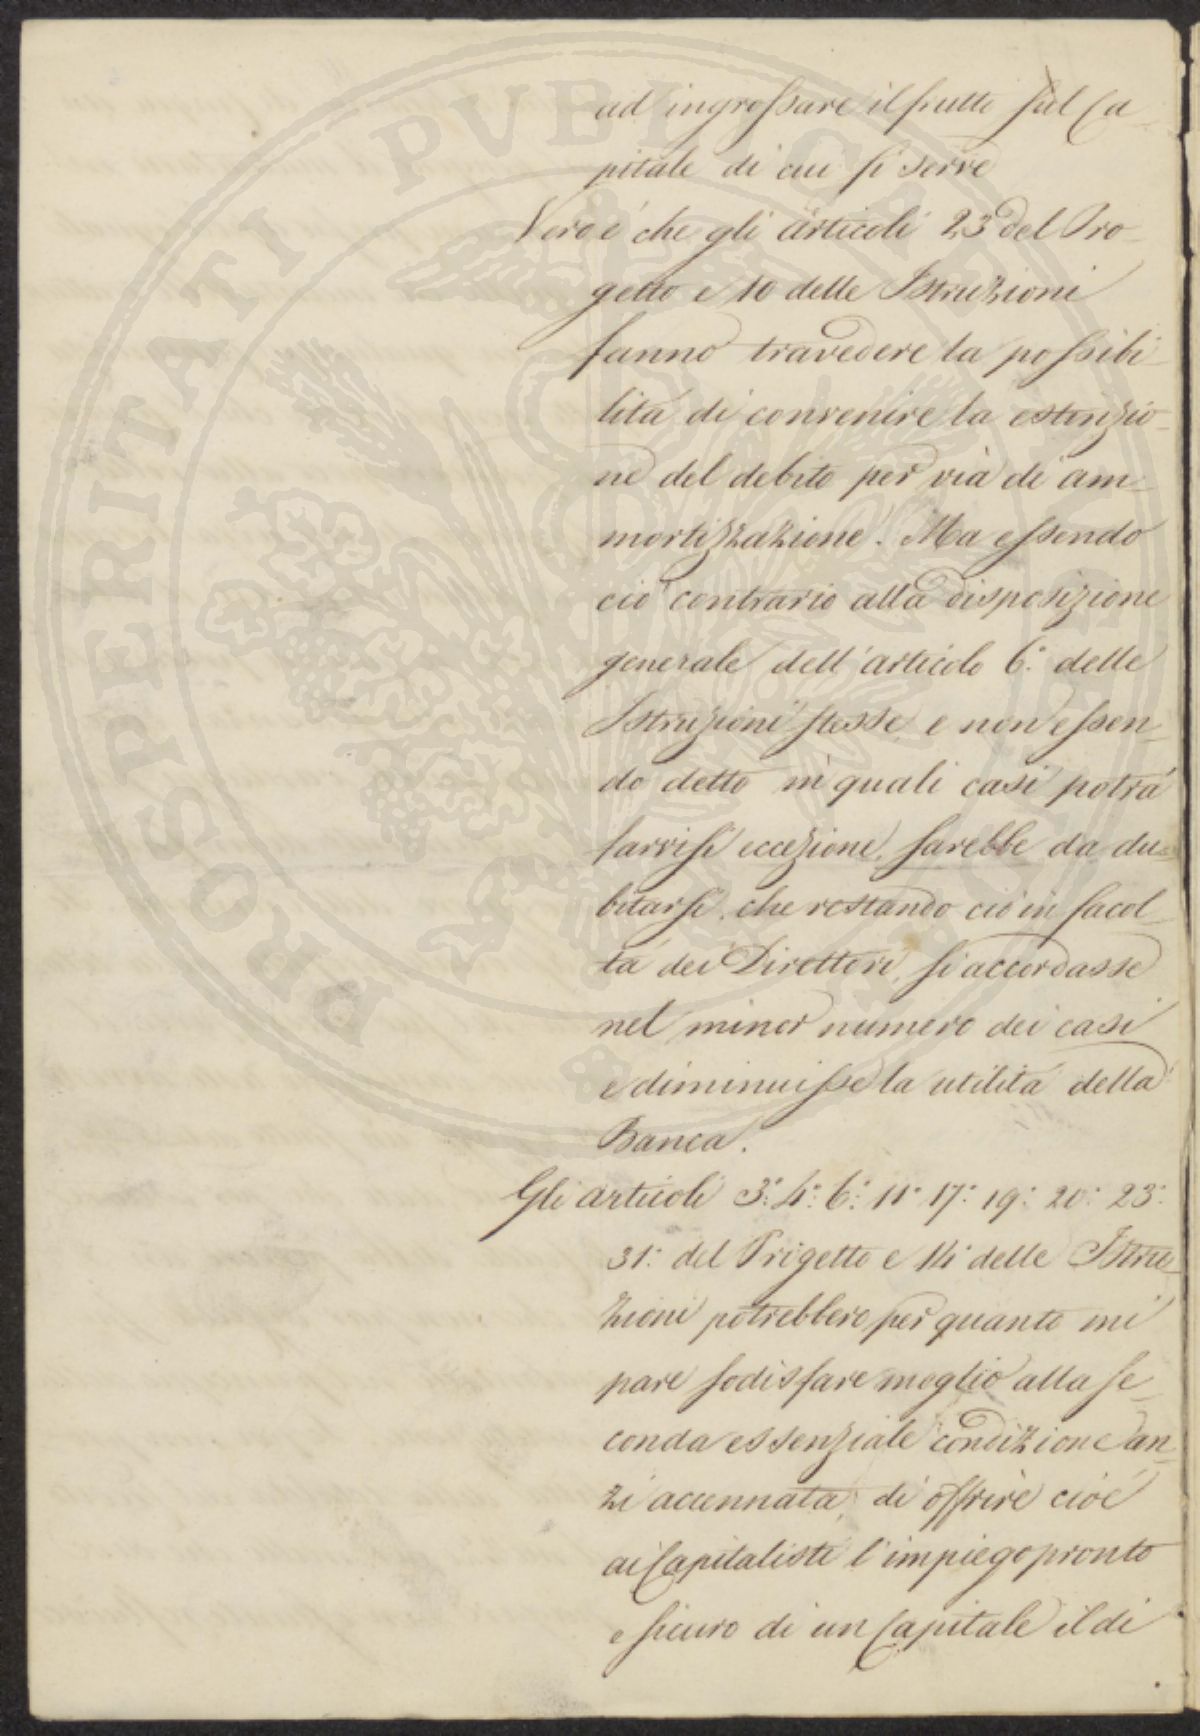 ad ingrossare il frutto sul Ca-
pitale di cui si serve
Vero è che gli articoli 23 del Pro-
getto e 10 delle Istruzioni
fanno travedere la possibi-
lità di convenire la estinzio-
ne del debito per via di am-
mortizzazione. Ma essendo
ciò contrario alla disposizione
generale dell'articolo 6.° delle
Istruzioni stesse, e non essen-
do detto in quali casi potrà
farvisi eccezione, sarebbe da du-
bitarsi, che restando ciò in facol-
tà dei Direttori, si accordasse
nel minor numero dei casi
e diminuisse la utilità della
Banca.
Gli articoli 3.° 4.° 6.° 11.° 17.° 19.° 20.° 23.°
31.° del Progetto e 14.° delle Istru-
zioni potrebbero per quanto mi
pare sodisfare meglio alla se-
conda essenziale condizione an-
zi accennata, di offrire cioè
ai Capitalisti l'impiego pronto
e sicuro di un Capitale il di
PROSPERITATI PUBLICAE